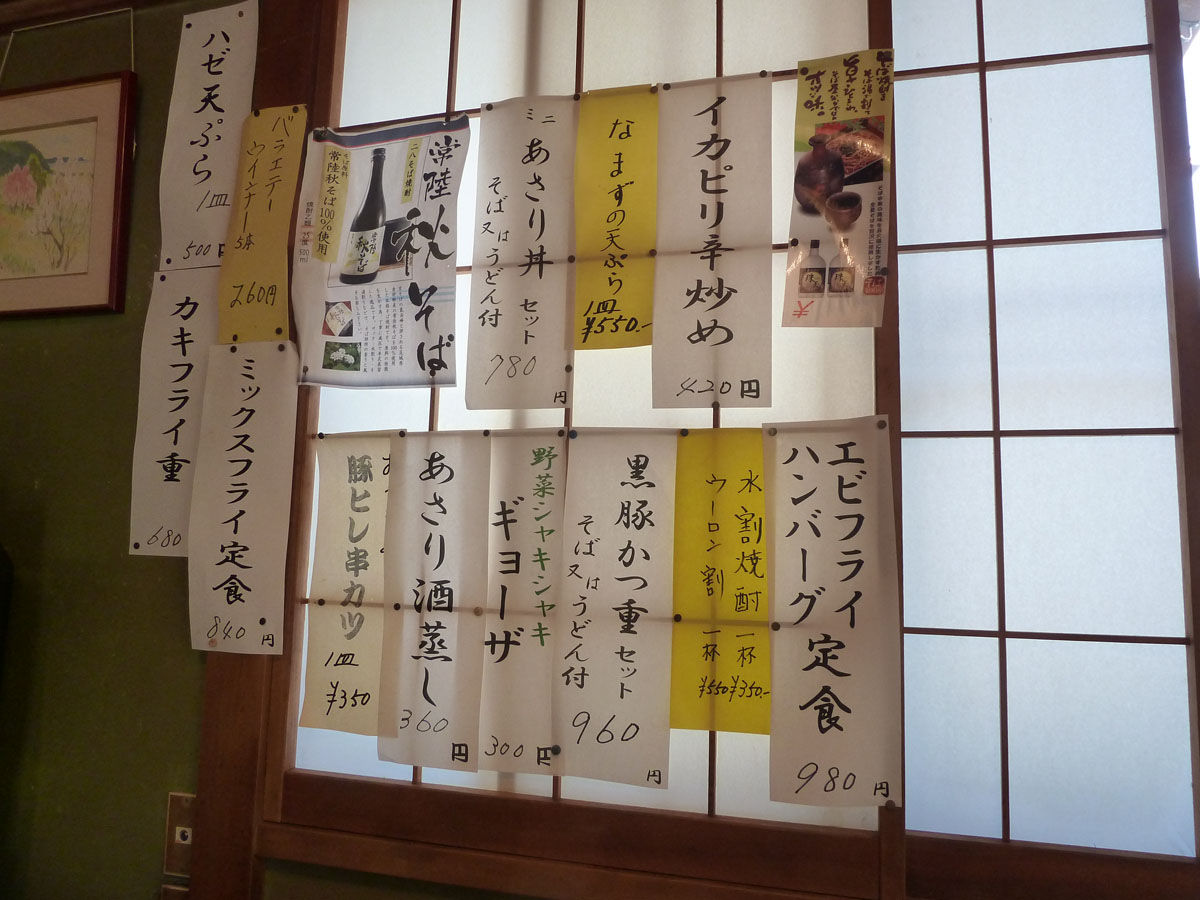 ハゼ天ぷら
1皿
500円
バラエテー
ウインナー
5本
260円
カキフライ重
680
ミックスフライ定食
840円
常陸秋そば
二八そば焼酎
そば原料
常陸秋そば100%使用
焼酎乙類 25度 500ml
ミニあさり丼セット
そば又はうどん付
780円
なまずの天ぷら
1皿
¥550.-
イカピリ辛炒め
420円
豚ヒレ串カツ
1皿
¥350
あさり酒蒸し
360円
野菜シャキシャキ
ギョーザ
300円
黒豚かつ重セット
そば又はうどん付
960円
水割焼酎 一杯 ¥350.-
ウーロン割 一杯 ¥550
エビフライ
ハンバーグ定食
980円